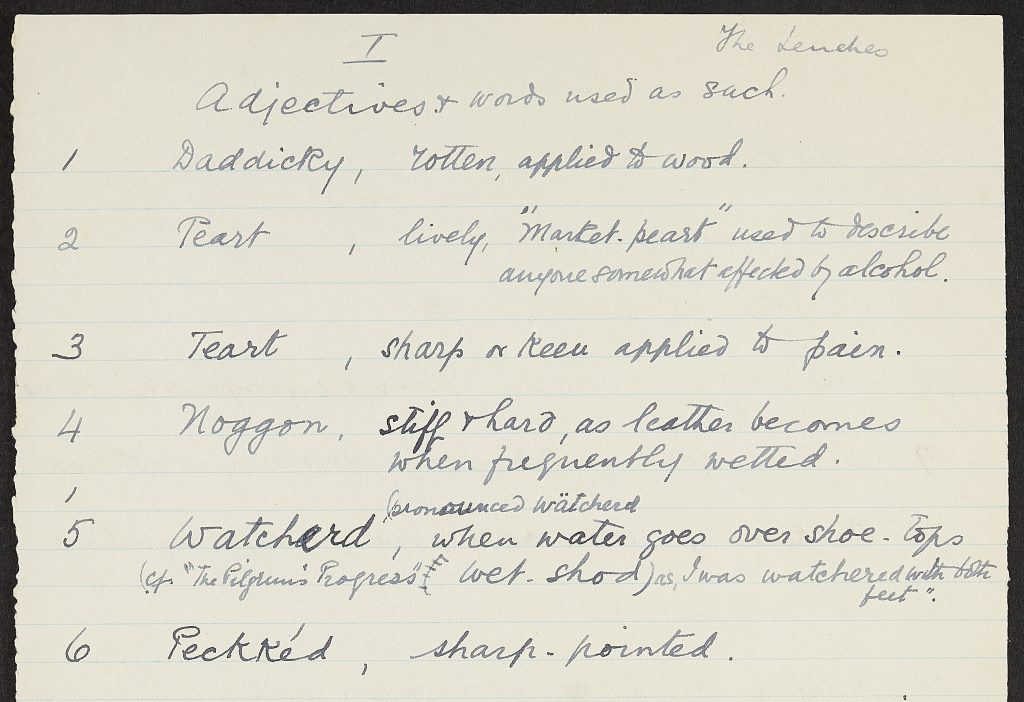 I
The Lenches
Adjectives & words used as such.
1 Daddicky, rotten, applied to wood.
2 Peart, lively, "Market-peart" used to describe
anyone somewhat affected by alcohol.
3 Teart, sharp or keen applied to pain.
4 Noggon, stiff & hard, as leather becomes
when frequently wetted.
(pronounced wätcherd
5 Watcherd, when water goes over shoe-tops
(cf. "The Pilgrim's Progress" wet-shod) as, I was watchered with both
feet".
6 Peckkéd, sharp-pointed.